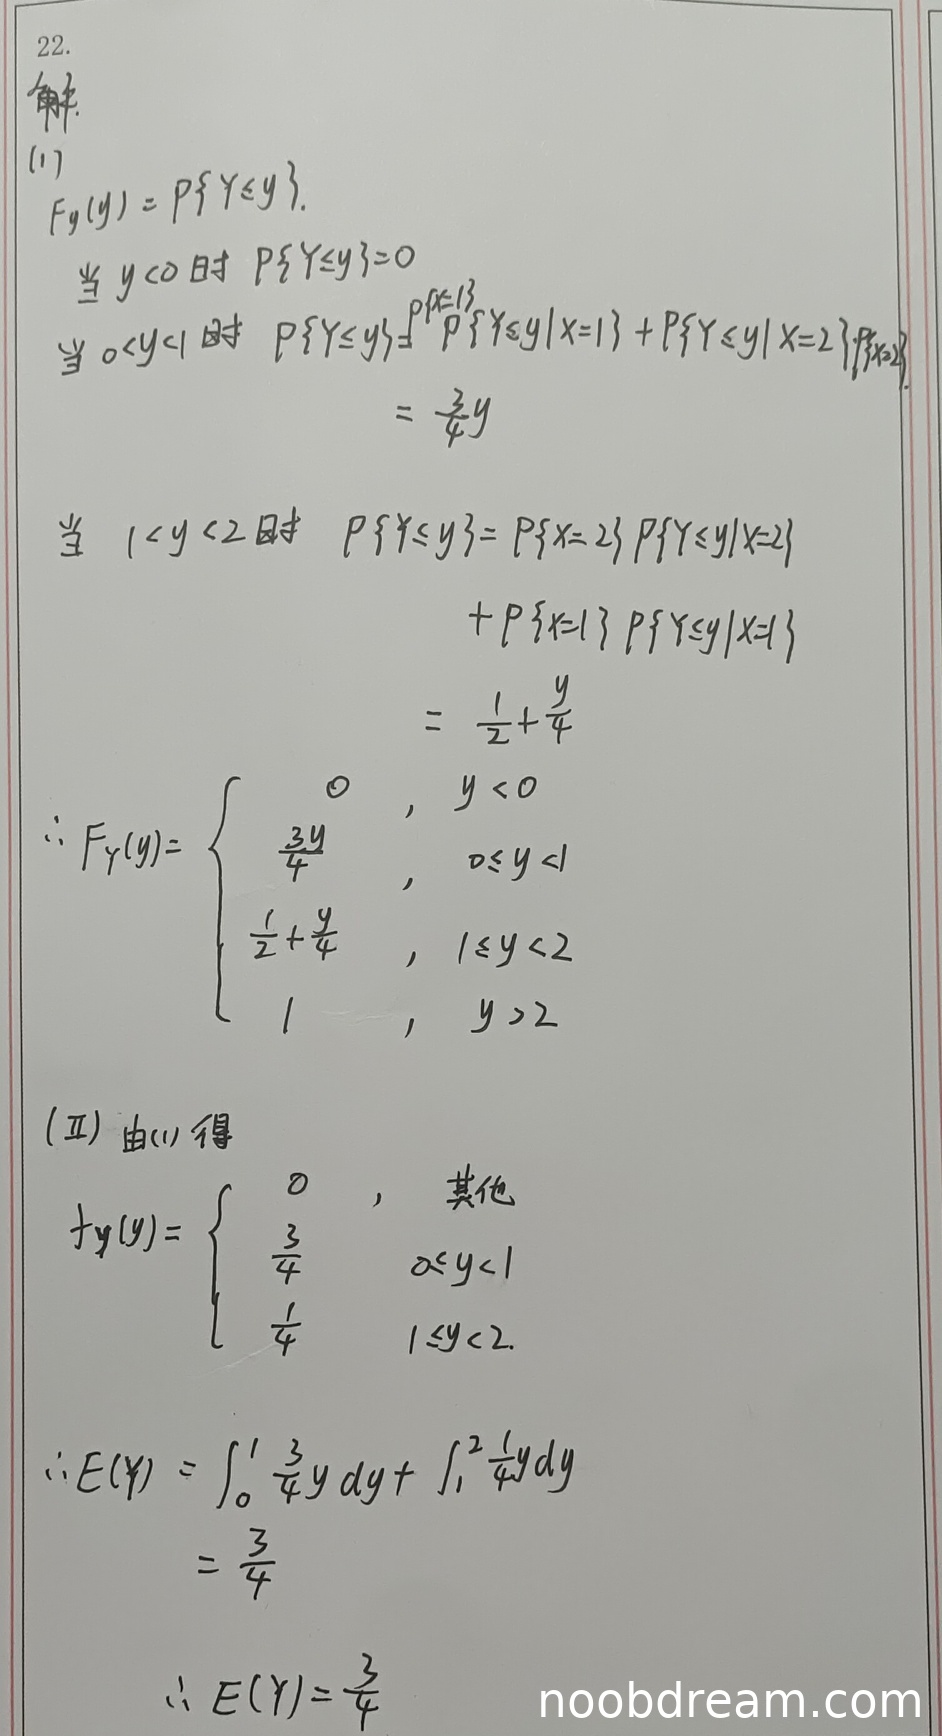 22.
解.
(1)
F_Y(y) = P{Y≤y}.
当 y<0 时 P{Y≤y}=0
当 0<y<1 时 P{Y≤y}= P{X=1} P{Y≤y|X=1} + P{Y≤y|X=2}·P{X=2}.
= 3/4 y
当 1<y<2 时 P{Y≤y} = P{X=2} P{Y≤y|X=2}
+ P{X=1} P{Y≤y|X=1}
= 1/2 + y/4
∴ F_Y(y) = { 0 , y<0
3y/4 , 0≤y<1
1/2 + y/4 , 1≤y<2
1 , y>2
(Ⅱ) 由(1) 得
f_Y(y) = { 0 , 其他
3/4 0≤y<1
1/4 1≤y<2.
∴ E(Y) = ∫_0^1 3/4 y dy + ∫_1^2 1/4 y dy
= 3/4
∴ E(Y) = 3/4
noobdream.com